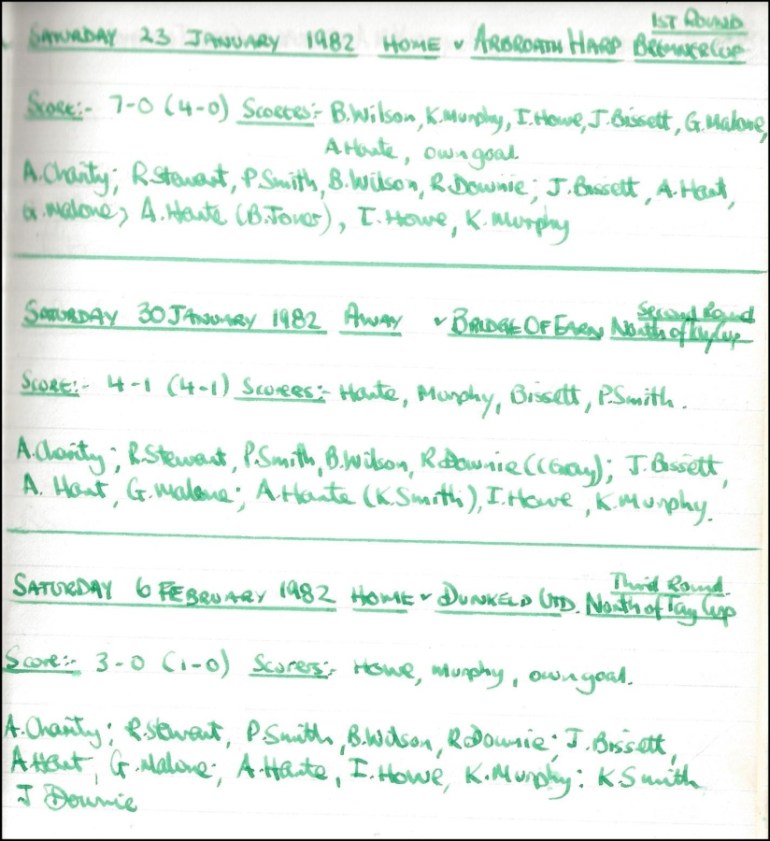 1ST ROUND
SATURDAY 23 JANUARY 1982 HOME v ARBROATH HARP BREMNER CUP
Score:- 7-0 (4-0) Scorers:- B.Wilson, K.Murphy, I.Howe, J.Bissett, G.Malone,
A.Haute, own goal.
A.Charity; R.Stewart, P.Smith, B.Wilson, R.Downie; J.Bissett, A.Hant,
G.Malone; A.Haute (B.Toner), I.Howe, K.Murphy
Second Round
SATURDAY 30 JANUARY 1982 AWAY v BRIDGE OF EARN North of Tay Cup
SCORE:- 4-1 (4-1) Scorers:- Haute, Murphy, Bissett, P.Smith.
A.Charity; R.Stewart, P.Smith, B.Wilson, R.Downie (C Gray); J.Bissett,
A. Hant, G.Malone; A.Haute (K.Smith), I.Howe, K.Murphy.
Third Round.
SATURDAY 6 FEBRUARY 1982 HOME v DUNKELD UTD. North of Tay Cup
Score:- 3-0 (1-0) Scorers:- Howe, Murphy, own goal.
A.Charity; R.Stewart, P.Smith, B.Wilson, R.Downie; J.Bissett,
A.Hant, G.Malone; A.Haute, I.Howe, K.Murphy: K Smith
J Downie